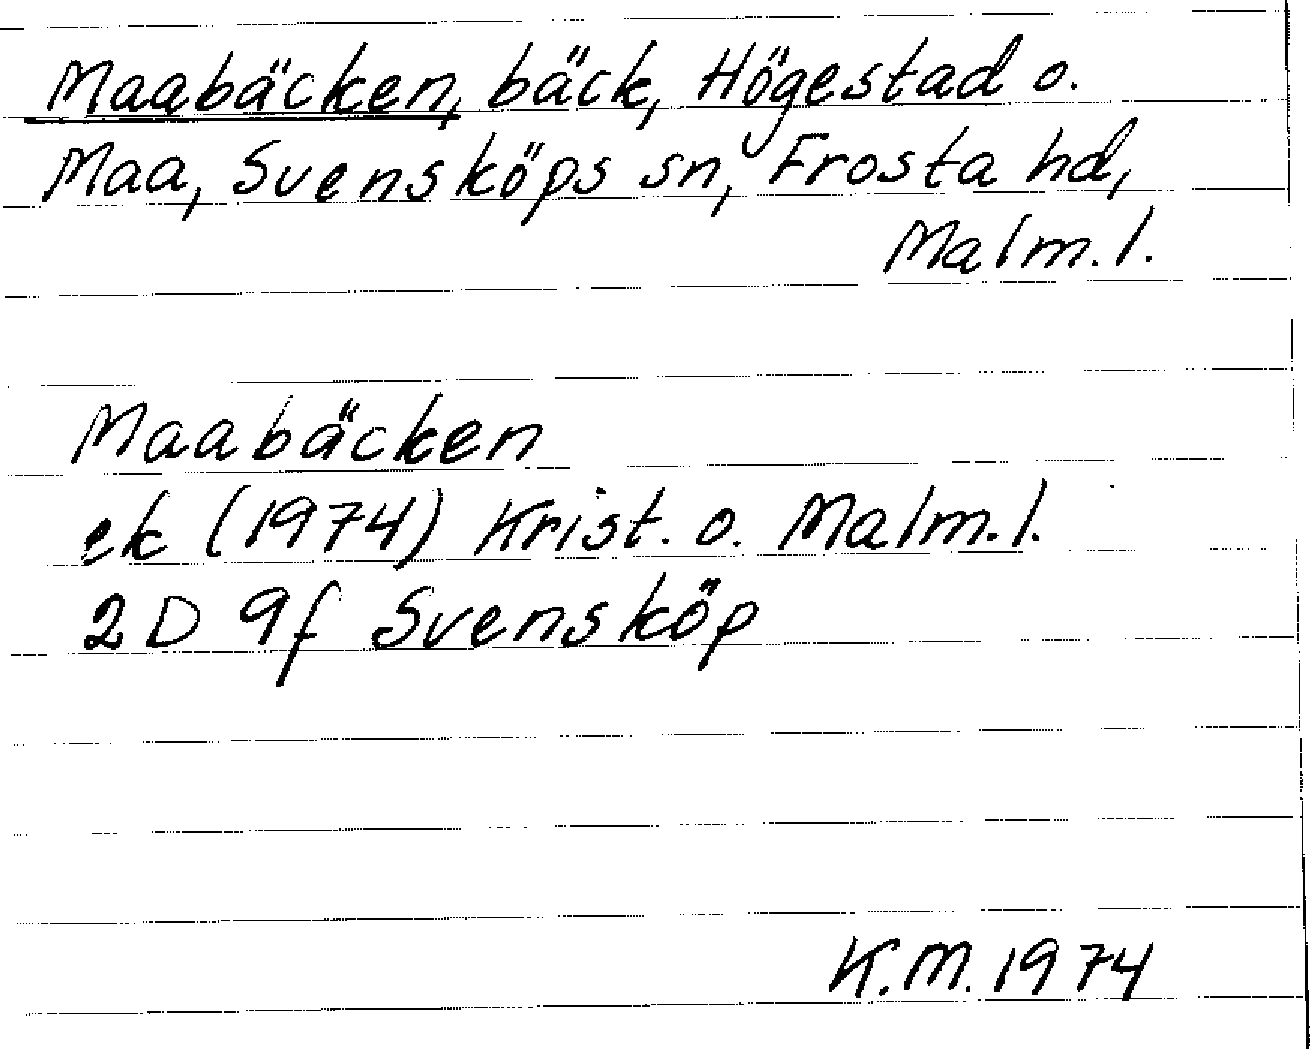 Maabäcken, bäck, Högestad o.
Maa, Svensköps sn, Frosta hd,
Malm.l.
Maabäcken
ek (1974) Krist. o. Malm.l.
2D 9f Svensköp
K.M. 1974